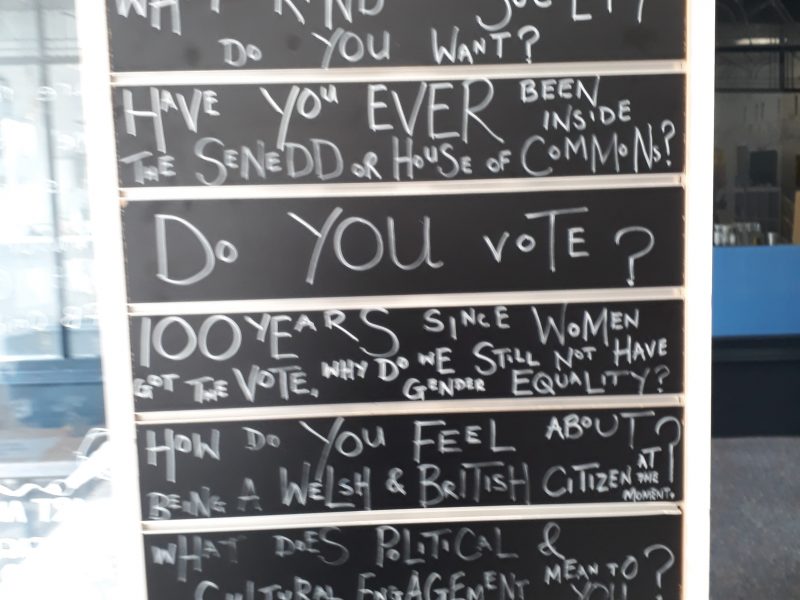 WHAT KIND SOCIETY
DO YOU WANT?
HAVE YOU EVER BEEN INSIDE
THE SENEDD OR HOUSE OF COMMONS?
DO YOU VOTE?
100 YEARS SINCE WOMEN
GOT THE VOTE, WHY DO WE STILL NOT HAVE
GENDER EQUALITY?
HOW DO YOU FEEL ABOUT?
BEING A WELSH & BRITISH CITIZEN AT THE MOMENT.
WHAT DOES POLITICAL &
CULTURAL ENGAGEMENT MEAN TO YOU?